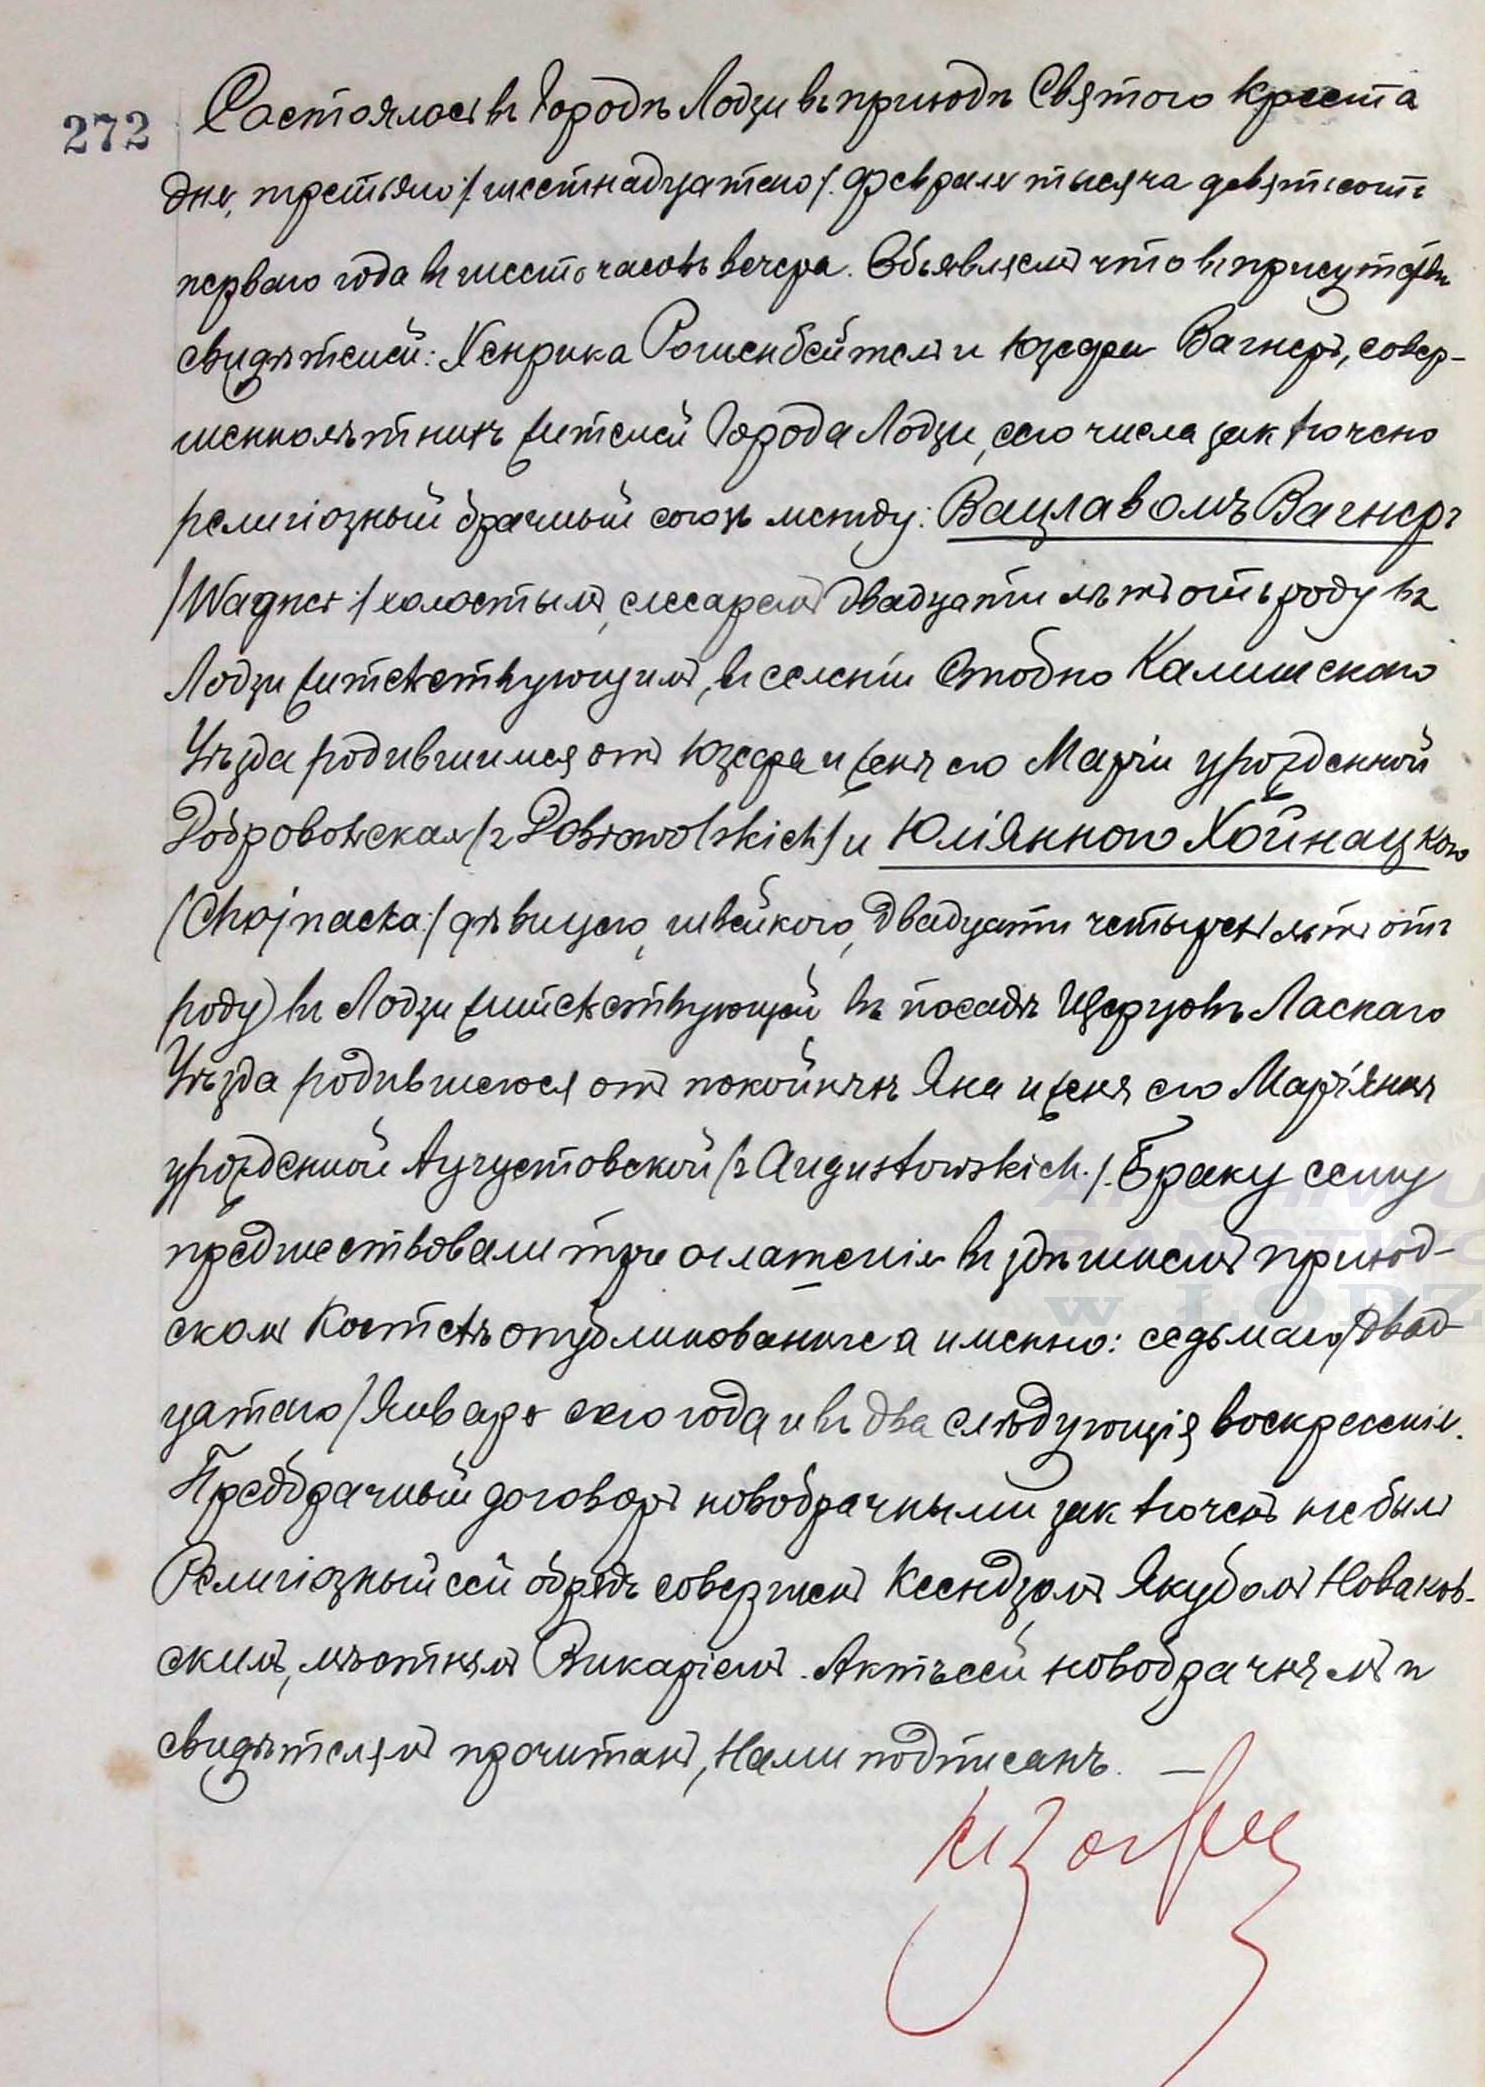 272
Состоялось въ Городѣ Лодзи въ приходѣ Святого Креста
дня, третьяго /:шестнадцатаго/. Февраля тысяча девятьсотъ
перваго года въ шесть часовъ вечера. Объявляемъ что въ присутствіи
свидѣтелей: Хенрика и Юзефа Вагнеръ, совер-
шеннолѣтнихъ жителей Города Лодзи, сего числа заключено
религіозный брачный союзъ между: Вацлавомъ Вагнеръ
/Wagner:/ холостымъ, слесаремъ двадцати лѣтъ отъ роду въ
Лодзи жительствующимъ, въ селеніи Калишскаго
Уѣзда родившимся отъ Юзефа и жены его Маріи урожденной
Добровольская /z Dobrowolskich/ и Юліянною Хойнацкою
/Chojnacka:/ дѣвицею, швейкою, двадцати четырехъ лѣтъ отъ
роду въ Лодзи жительствующей въ посадѣ Щерцовъ Ласкаго
Уѣзда родившеюся отъ покойныхъ Яна и жены его Маріянны
урожденной Аугустовской /z Augustowskich./. Браку сему
предшествовали три оглашенія въ здѣшнемъ приход-
скомъ Костелѣ опубликованные а именно: седьмаго /двад-
цатаго/ Января сего года и въ два слѣдующія воскресенія.
Предбрачный договоръ новобрачными заключенъ не былъ
Религіозный сей обрядъ совершенъ Ксендзомъ Якубомъ Новаков-
скимъ, мѣстнымъ Викаріемъ. Актъ сей новобрачнымъ и
свидѣтелямъ прочитанъ, Нами подписанъ. —
ARCHIWU
PAŃSTWO
w ŁODZ